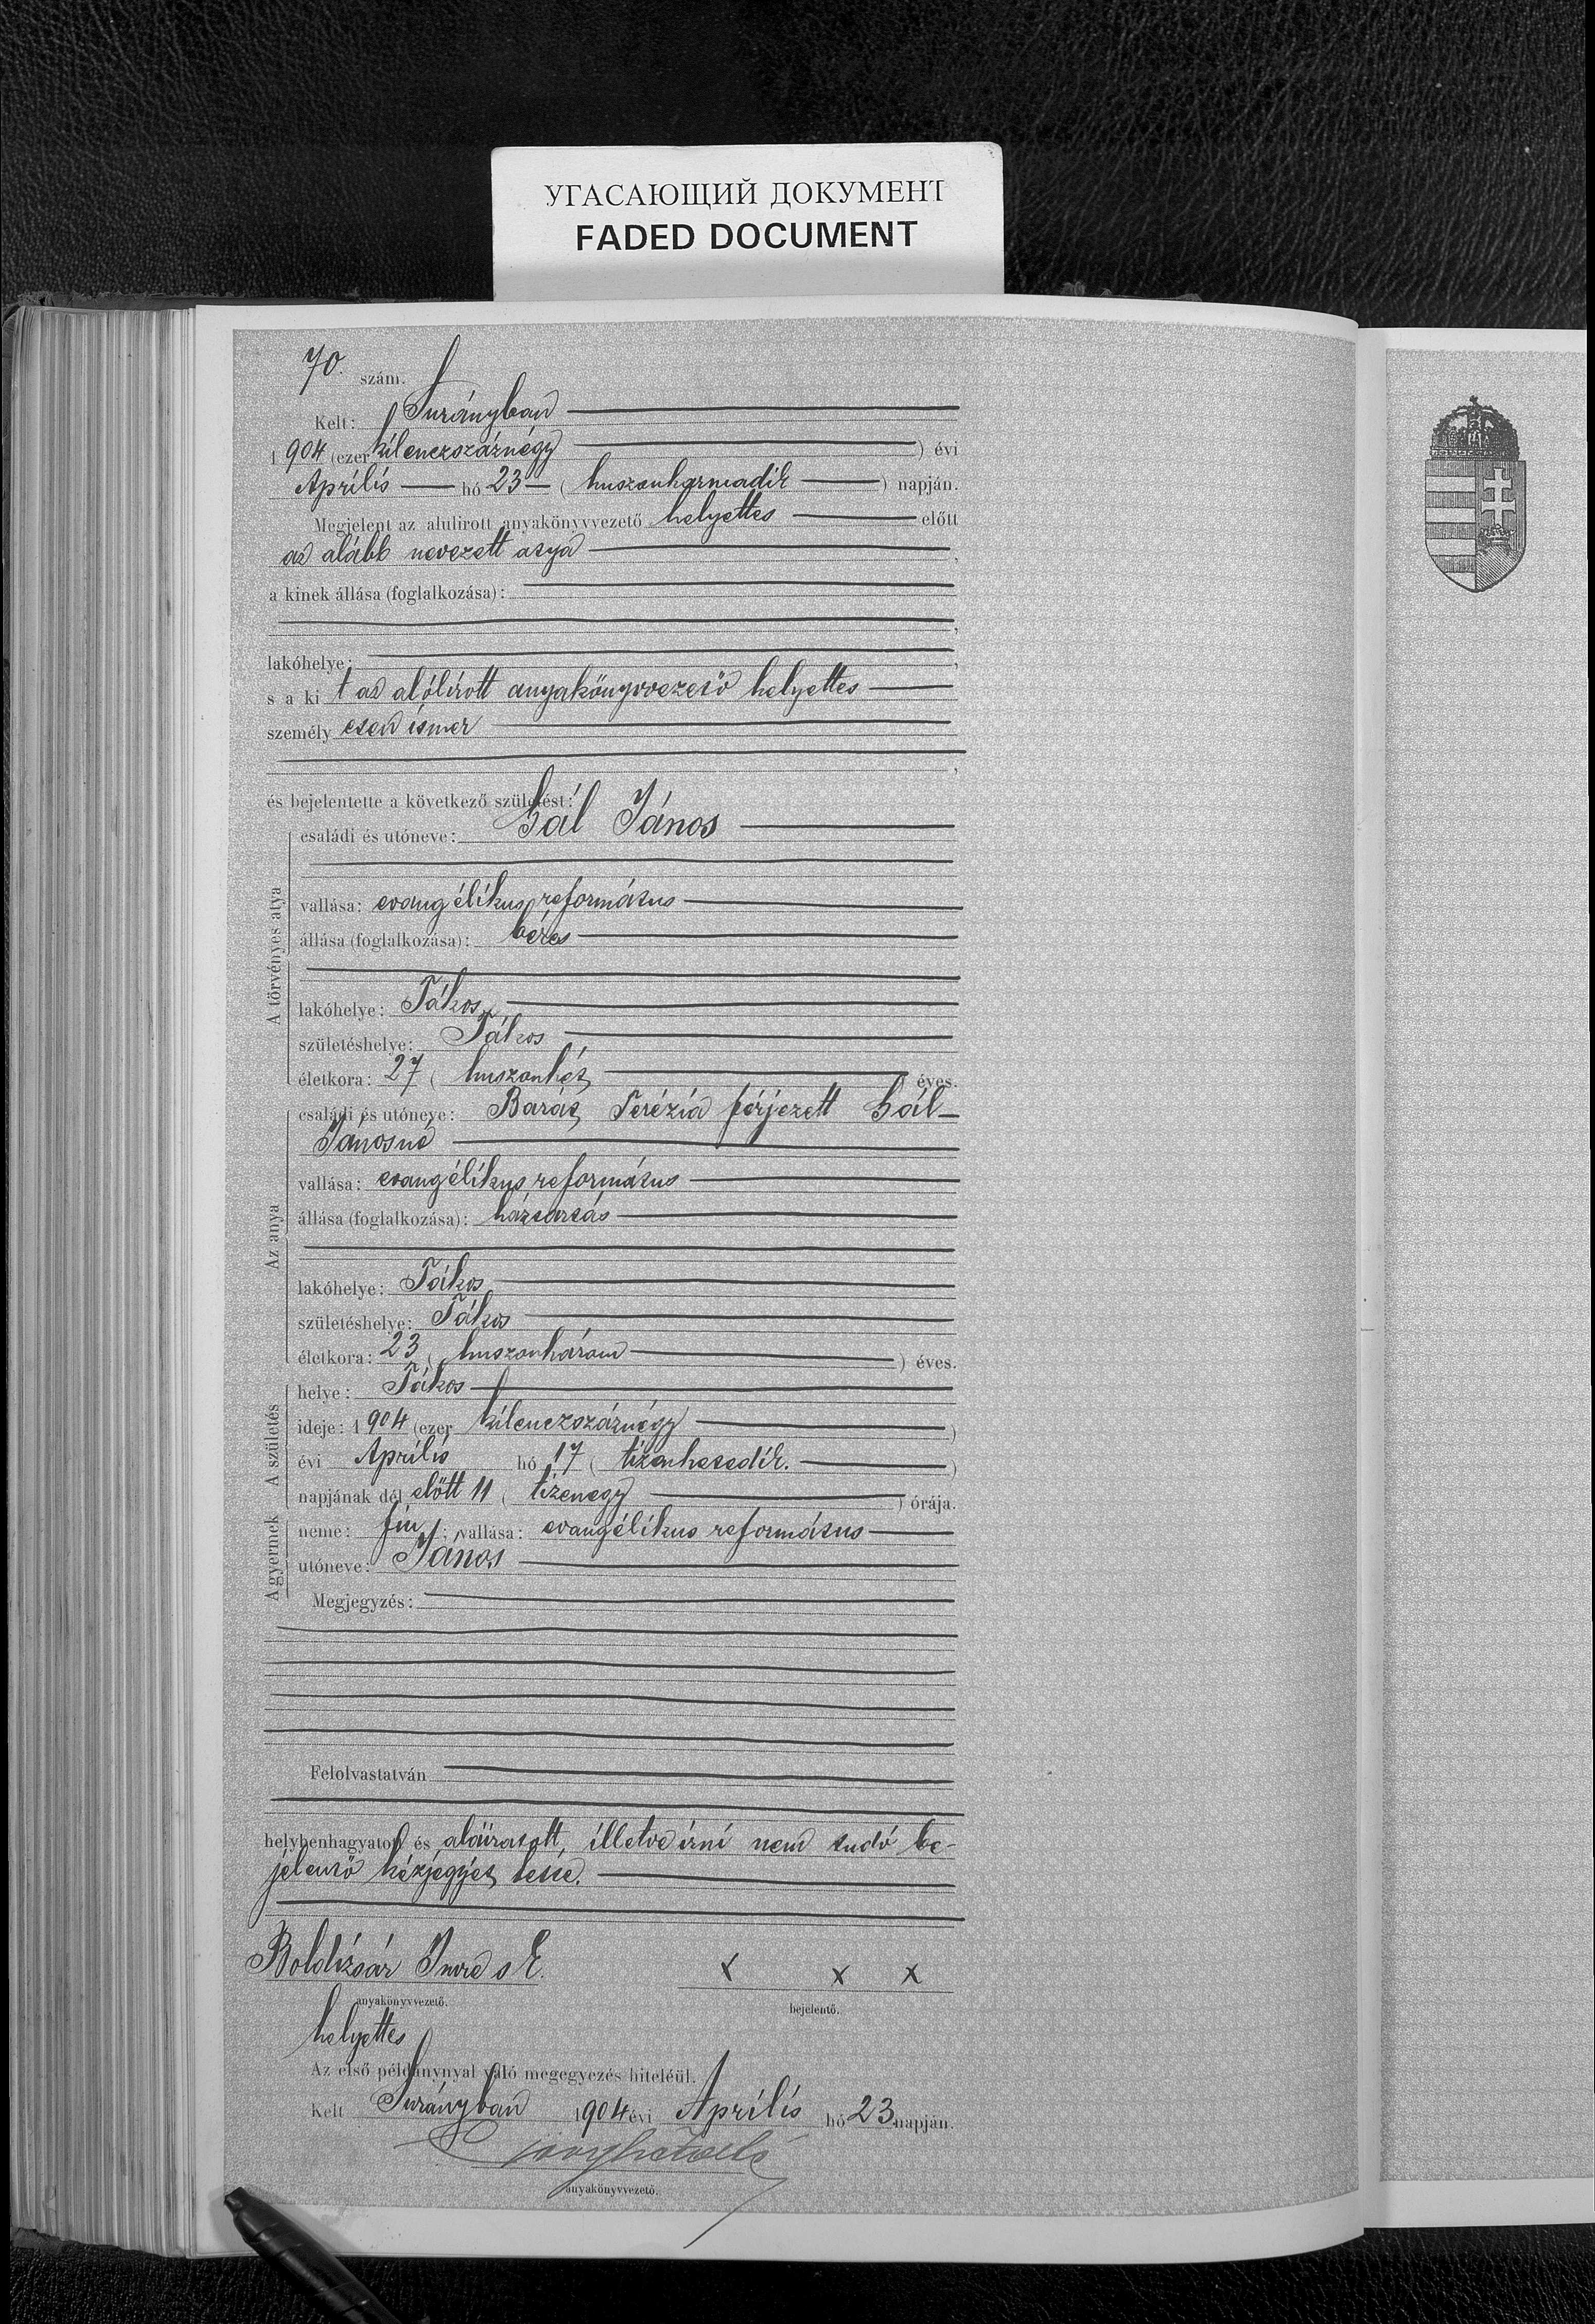 УГАСАЮЩИЙ ДОКУМЕНТ
FADED DOCUMENT
70. szám.
Kelt: Surányban
1904 (ezer kilenczszáznégy) évi
Április hó 23 (huszonharmadik) napján.
Megjelent az alulirott anyakönyvvezető helyettes előtt
az alább nevezett atya,
a kinek állása (foglalkozása):
lakóhelye:
s a ki t az alólirott anyakönyvvezető helyettes
személy esen ismer
és bejelentette a következő születést:
A törvényes atya
családi és utóneve: Gál János
vallása: evangélikus református
állása (foglalkozása): béres
lakóhelye: Tákos
születéshelye: Tákos
életkora: 27 (huszonhét) éves.
Az anya
családi és utóneve: Barát Terézia férjezett Gál
Jánosné
vallása: evangélikus református
állása (foglalkozása): háztartás
lakóhelye: Tákos
születéshelye: Tákos
életkora: 23 (huszonhárom) éves.
A születés
helye: Tákos
ideje: 1904 (ezer kilenczszáznégy)
évi Április hó 17 (tizenhetedik.)
napjának dél előtt 11 (tizenegy) órája.
A gyermek
neme: fiu; vallása: evangélikus református
utóneve: János
Megjegyzés:
Felolvastatván
helybenhagyatott és aláiratott, illetve irni nem tudó be-
jelentő kézjegyét tette.
Boldizsár Imre s. k. x x x
anyakönyvvezető. bejelentő.
helyettes
Az első példánynyal való megegyezés hiteléül.
Kelt Surányban 1904 évi Április hó 23 napján.
anyakönyvvezető.